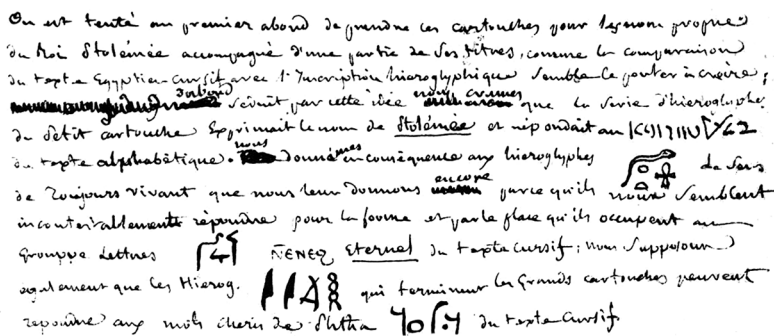 On est tenté au premier abord de prendre ces cartouches pour les nom propre
du Roi Ptolémée accompagné d'une partie de ses titres, comme la comparaison
du texte Egyptien cursif avec l'Inscription hieroglyphique semble le porter à croire;
d'abord séduit par cette idée nous crumes que la serie d'hieroglyphes
du Petit cartouche Exprimait le nom de Ptolémée et répondait au
du texte alphabétique. nous donnâmes en conséquence aux hieroglyphes le sens
de Toujours vivant que nous leur donnons encore parce qu'ils nous semblent
incontestablement répondre pour la forme et par la place qu'ils occupent au
Grouppe Lettres ÑENEϨ Eternel du texte cursif; nous supposons
egalement que les Hierog. qui terminent les Grands cartouches peuvent
repondre aux mots cheri de Phtha du texte Cursif